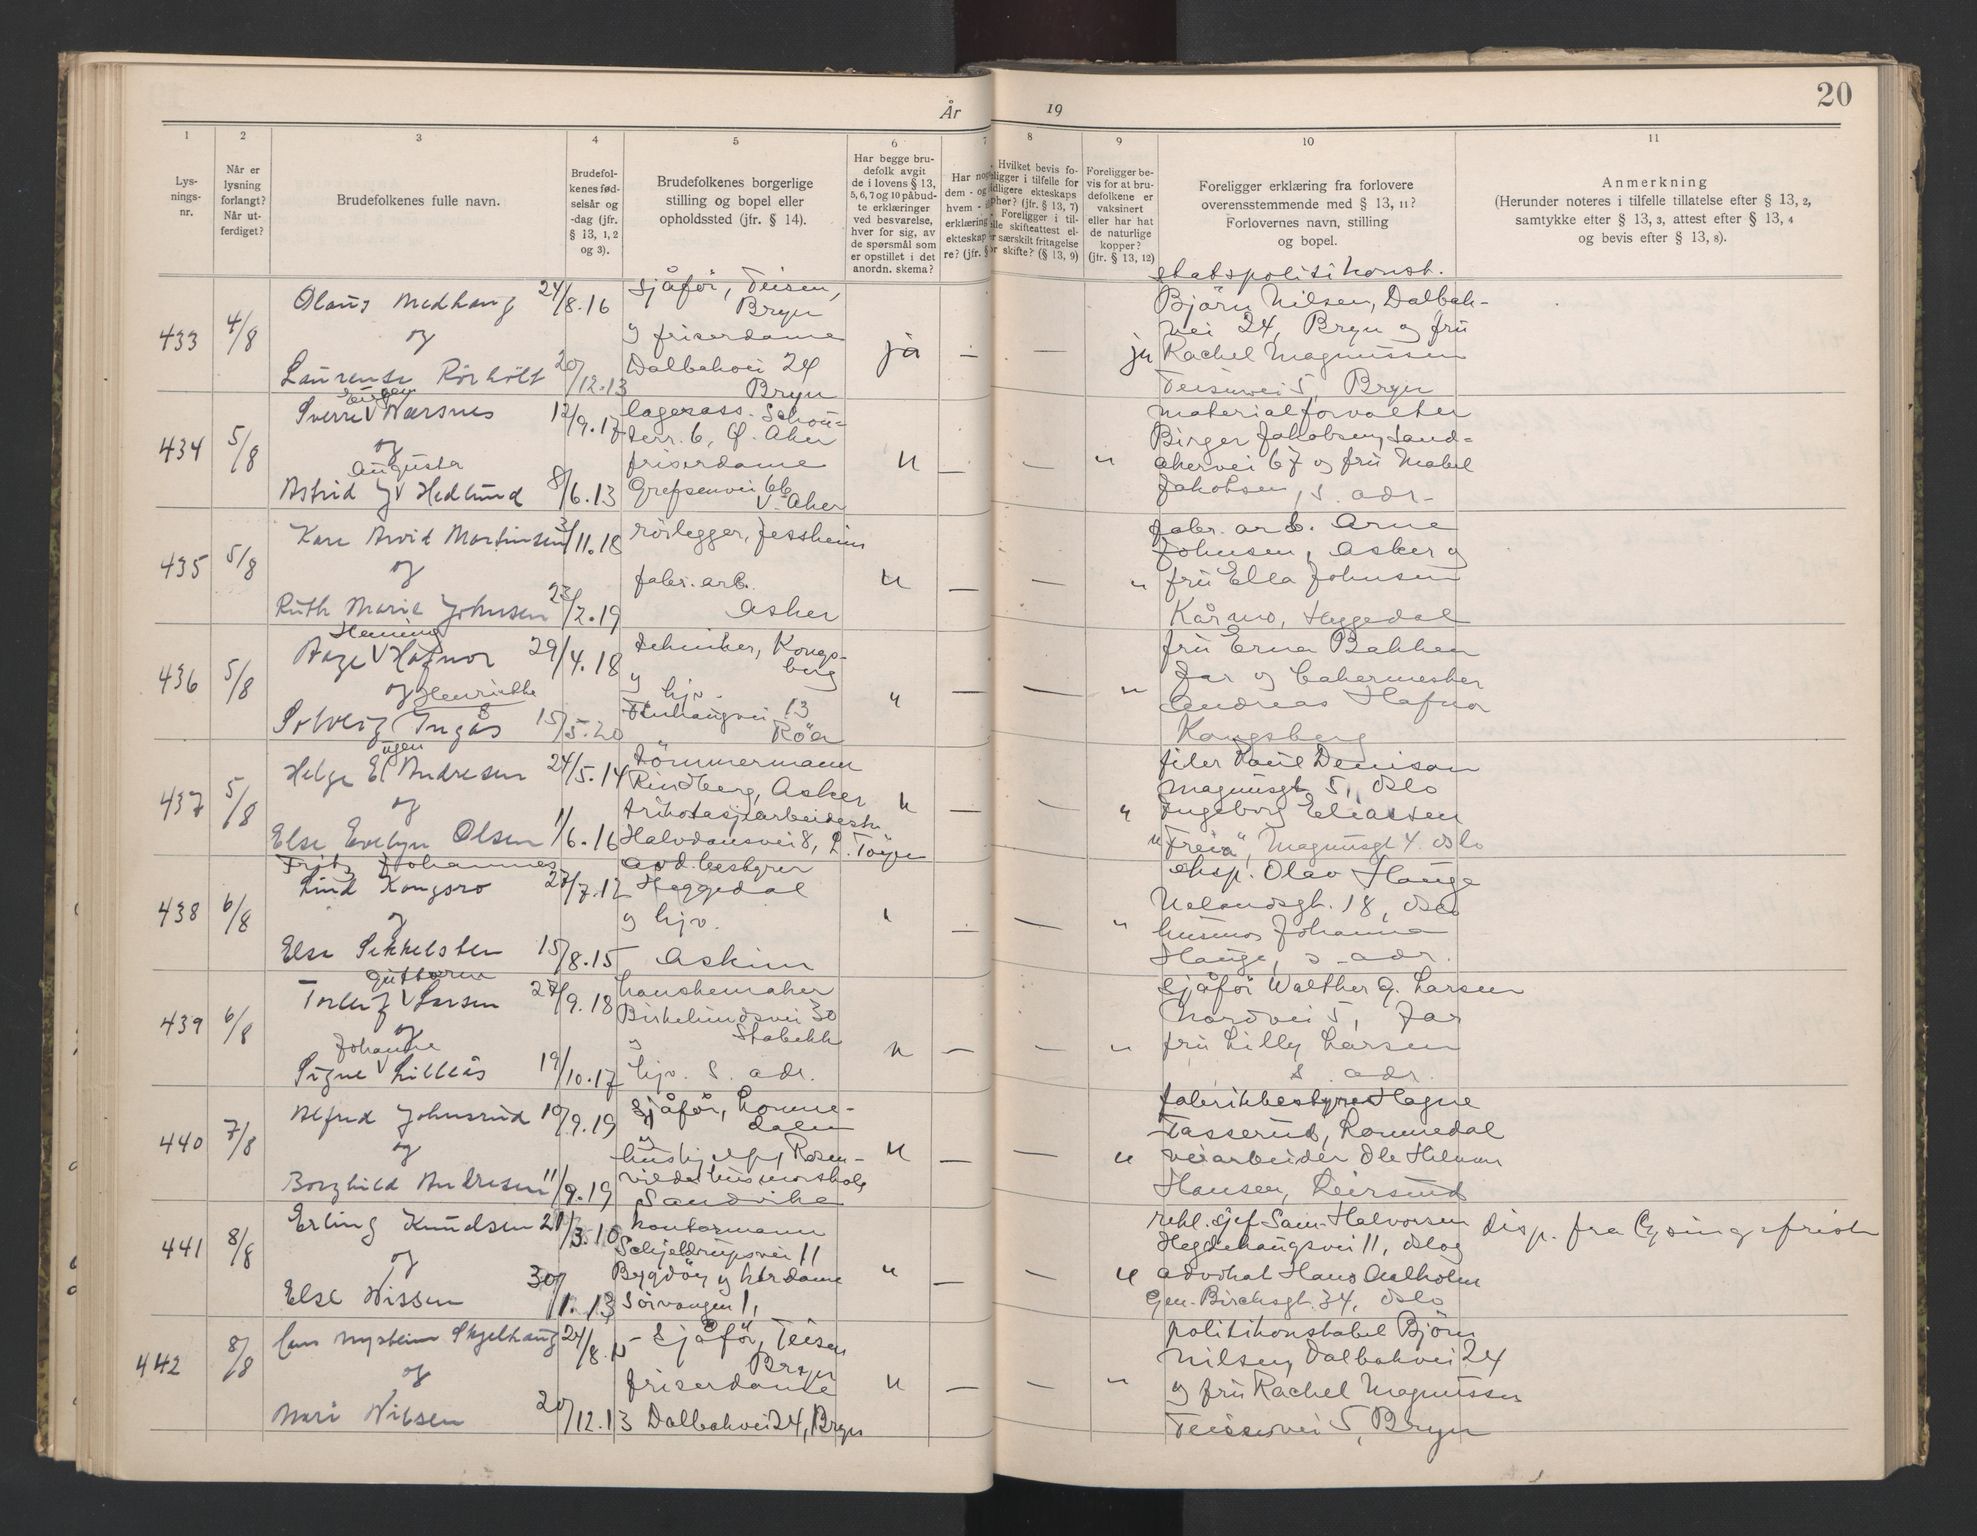 År 19
20
1 2 3 4 5 6 7 8 9 10 11
Lys-
nings-
nr.
Når er
lysning
forlangt?
Når ut-
ferdiget?
Brudefolkenes fulle navn.
Brudefol-
kenes fød-
selsår og
-dag (jfr.
§ 13, 1, 2
og 3).
Brudefolkenes borgerlige
stilling og bopel eller
opholdssted (jfr. § 14).
Har begge bru-
defolk avgit
de i lovens § 13,
5, 6, 7 og 10 påbud-
te erklæringer
ved besvarelse,
hver for sig, av
de spørsmål som
er opstillet i det
anordn. skema?
Har nog
dem - og
hvem -
erklæring
ekteskap
re? (jfr. §
Hvilket bevis fo-
religger i tilfelle for
tidligere ekteskaps
ophør? (jfr. § 13, 7)
Foreligger i til-
felle skifteattest el-
ler særskilt fritagelse
for skifte? (§ 13, 9)
Foreligger be-
vis for at bru-
defolkene er
vaksinert
eller har hat
de naturlige
kopper?
(jfr. § 13, 12)
Foreligger erklæring fra forlovere
overensstemmende med § 13, 11?
Forlovernes navn, stilling
og bopel.
Anmerkning
(Herunder noteres i tilfelle tillatelse efter § 13, 2,
samtykke efter § 13, 3, attest efter § 13, 4
og bevis efter § 13, 8).
433 4/8
Olaus Medhaug 24/8.16
og
Laurense Rörholt 20/12.13
sjåför, Teisen,
Bryn
og friserdame
Dalbakvei 24
Bryn
ja — — ja
statspolitikonst.
Björn Nilsen, Dalbak-
vei 24, Bryn og fru
Rachel Magnussen
Teisenvei 5, Bryn
434 5/8
Eugen
Sverre V Nærsnes 12/9.17
og
Augusta
Astrid V Hedlund 8/6.13
lagerass. Schou-
terr. 6, Ø. Aker
friserdame
Grefsenvei 66
V. Aker
" — — "
materialforvalter
Birger Jakobsen, Sand-
akervei 67 og fru Mabel
Jakobsen, s. adr.
435 5/8
Kåre Arvid Martinsen 3/11.18
og
Ruth Marie Johnsen 23/2.19
rörlegger, Jessheim
fabr. arb.
Asker
" — — "
fabr. arb. Arne
Johnsen, Asker og
fru Ella Johnsen
Kårmo, Heggedal
436 5/8
Henning
Aage V Hafnor 29/4.18
og Henriette
Solveig Ingås 15/5.20
tekniker, Kongs-
berg
og hjv.
13
Röa
" — — "
fru Erna Bakken
Jar og bakermester
Andreas Hafnor
Kongsberg
437 5/8
ugen
Helge E Andresen 24/5.14
og
Else Evelyn Olsen 1/6.16
tömmermann
Rindberg, Asker
trikotasjearbeidersk
Halvdansvei 8, L. Töyen
" — — "
filer Kaul Denison
Magnusgt 5, Oslo
Ingeborg Eliassen
"Freia", Magnusgt 4. Oslo
438 6/8
Fritz Johannes
Lind Kongsro 27/7.12
og
Else Sikkelsten 15/8.15
avd. bestyrer
Heggedal
og hjv.
Askim
" — — "
eksp. Olav Hauge
Uelandsgt. 18, Oslo
husmor Johanna
Hauge, s. adr.
439 6/8
Guttorm
Torleif V Larsen 27/9.18
og
Johanne
Signe V Lilleås 19/10.17
hanskemaker
Birkelundsvei 30
Stabekk
og
hjv. s. adr.
" — — "
sjåför Walther G. Larsen
Nordvei 5, Jar
fru Lilly Larsen
s. adr.
440 7/8
Alfred Johnsrud 10/9.19
og
Borghild Andresen 11/9.19
sjåför, Lomme-
dalen
og
hushjelp, Rosen-
vilde husmorskole
Sandvika
" — — "
fabrikkbestyrer Hagne
Tasserud, Lommedal
veiarbeider Ole Helmer
Hansen, Leirsund
441 8/8
Erling Knudsen 21/3.10
og
Else Nissen 30/1.13
kontormann
Schjeldrupsvei 11
Bygdöy og ktrdame
Sörvangen 1,
" — — "
rekl. sjef Sam. Halvorsen
Hegdehaugsvei 11, Oslo og
advokat Hans Aalholm
Gen. Birchsgt. 34, Oslo
disp. fra lysningsfrist
442 8/8
Skjelhaug 24/8.
og
Mari Nilsen 20/12.13
sjåför, Teisen
Bryn
friserdame
Dalbakvei 24, Bryn
" — — "
politikonstabel Björn
Nilsen, Dalbakvei 24
og fru Rachel Magnussen
Teisenvei 5, Bryn